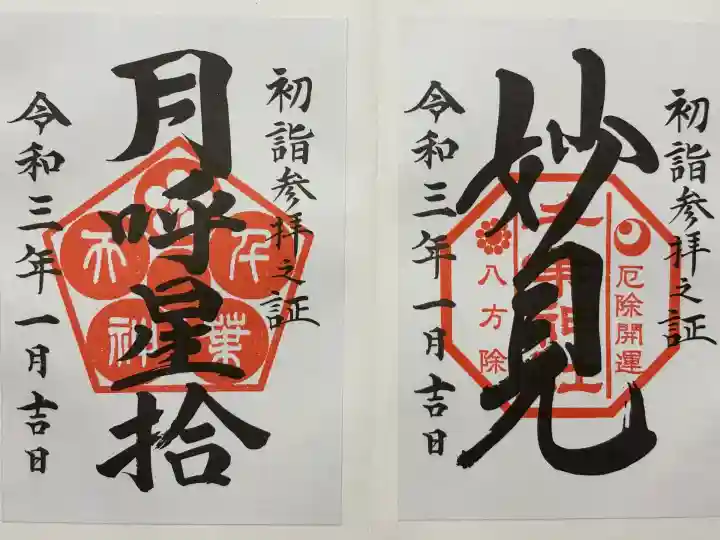 初詣参拝之証
月呼星拾
令和三年一月吉日
千葉
天神
初詣参拝之証
妙見
厄除開運
八方除
令和三年一月吉日